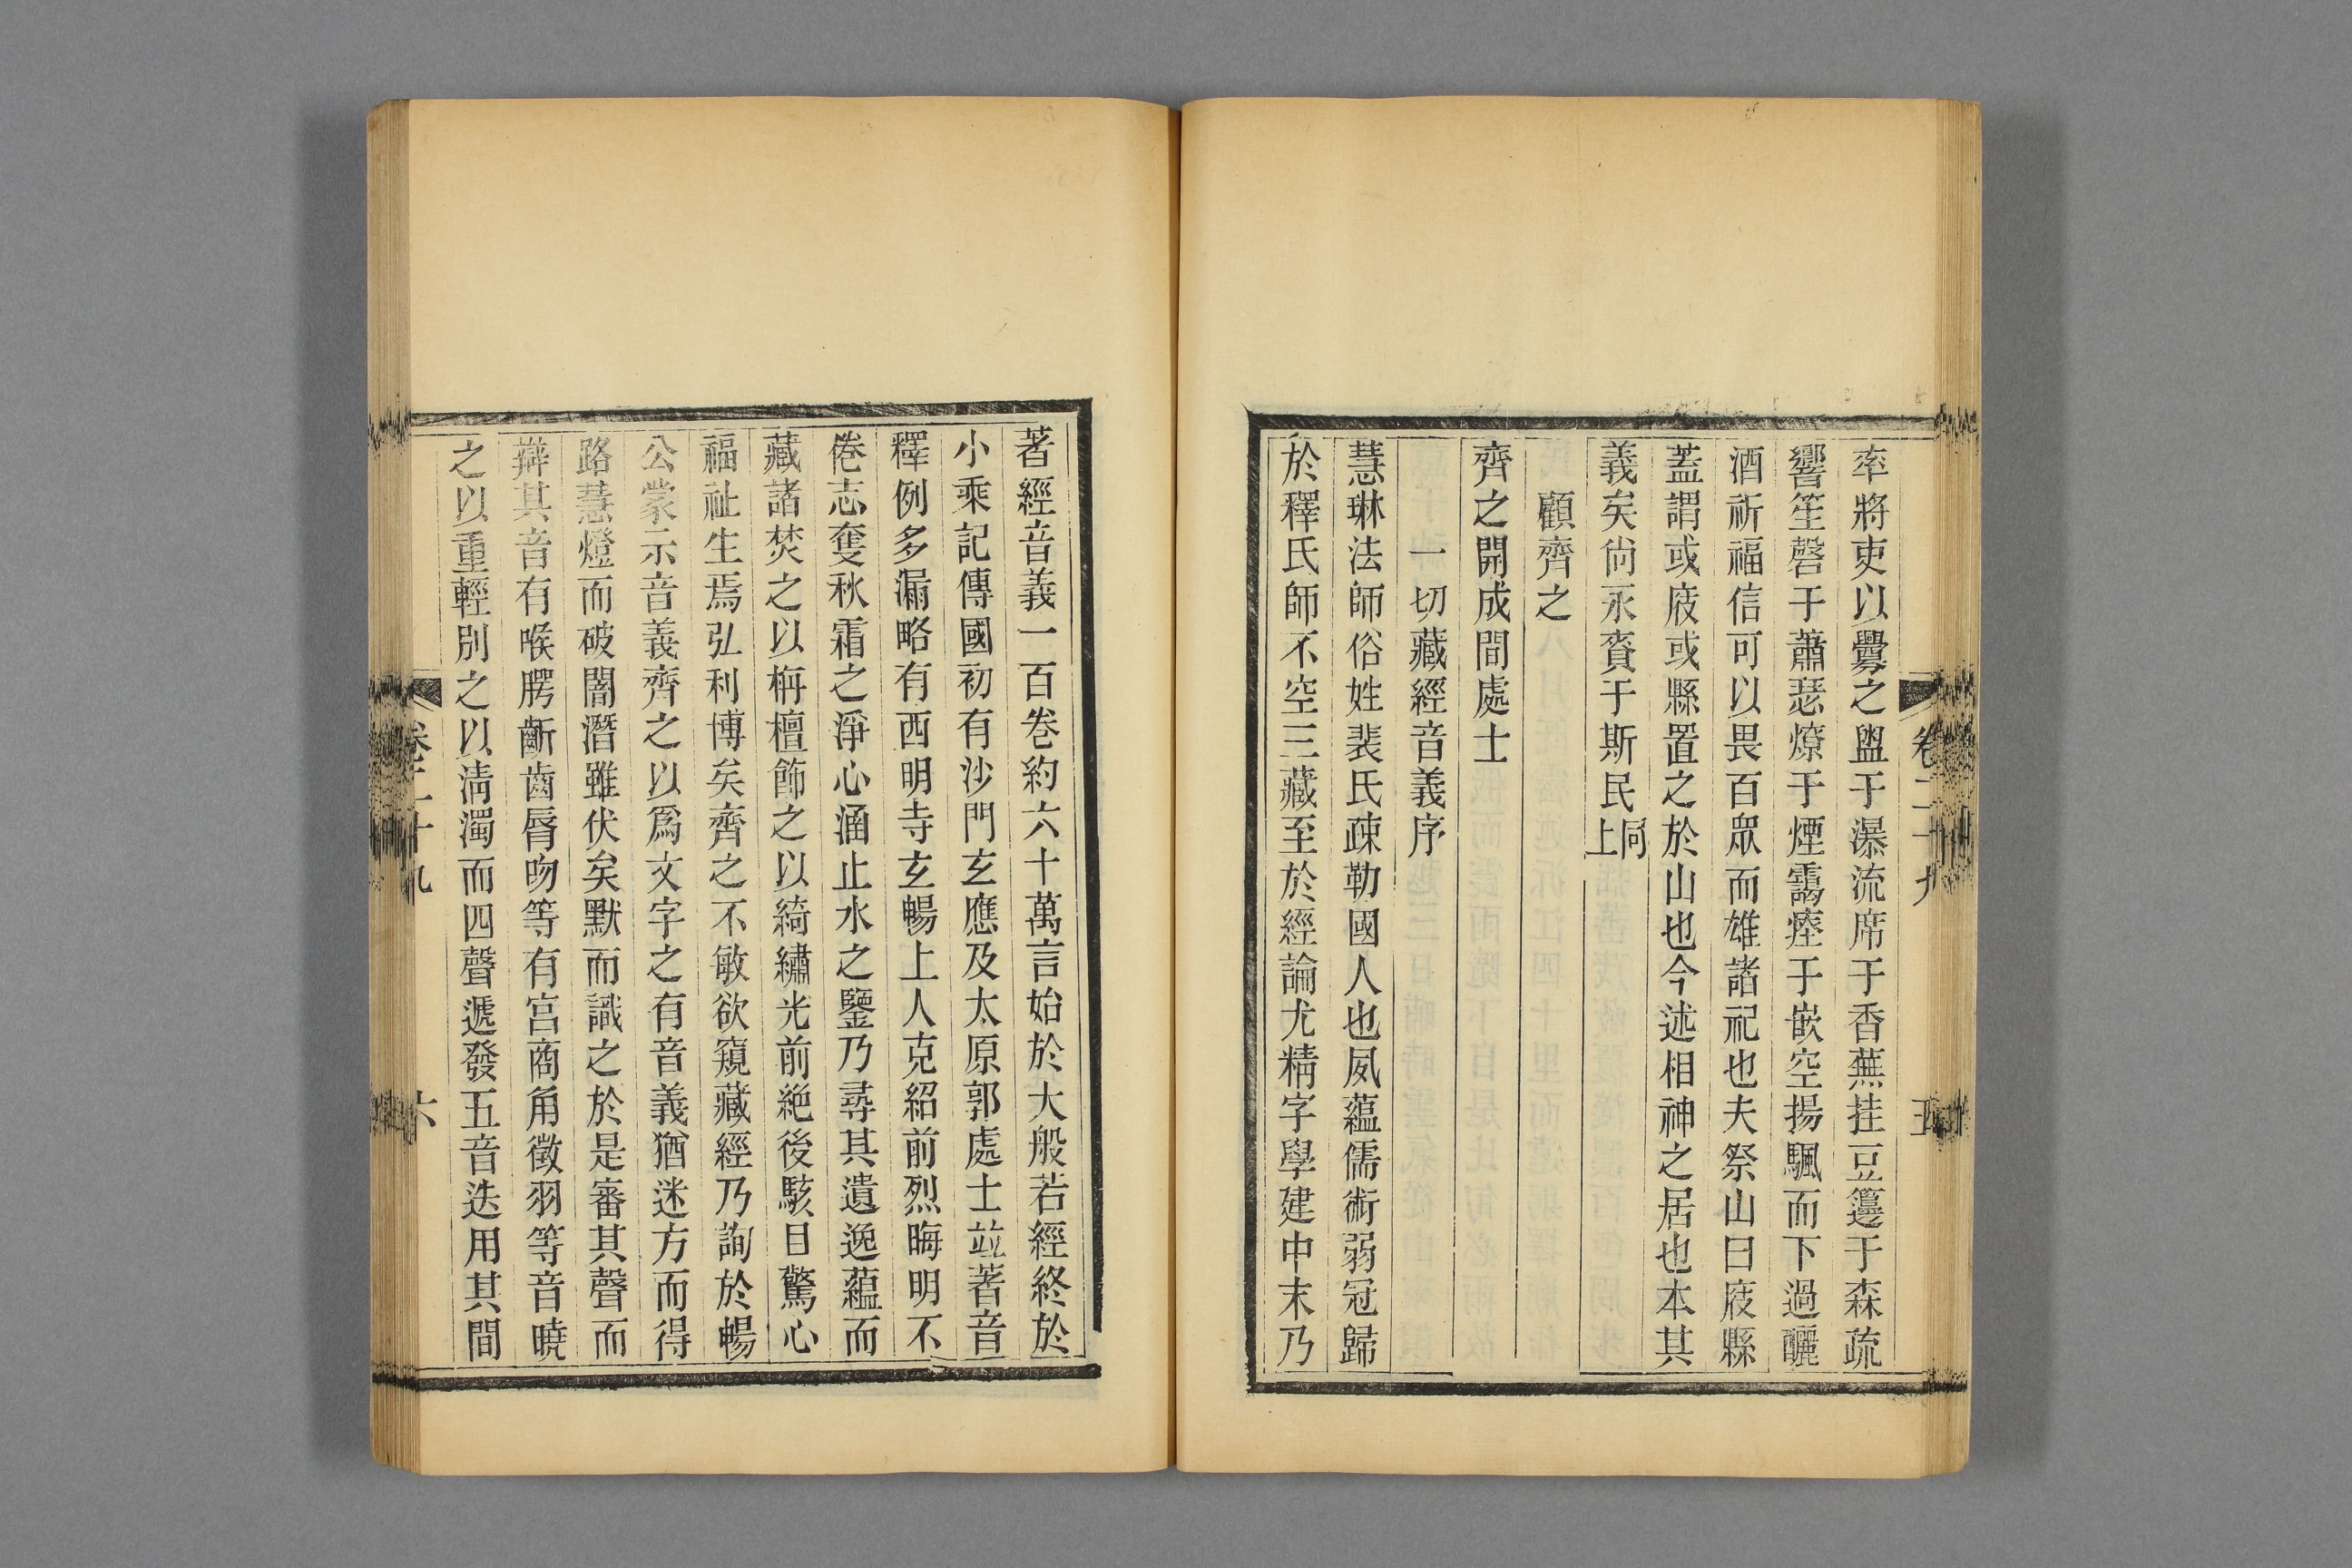 卷二十九
五
率將吏以釁之盥于瀑流席于香蕪挂豆籩于森疏
響笙磬于蕭瑟燎于煙靄瘞于嵌空揚颿而下過釃
酒祈福信可以畏百眾而雄諸祀也夫祭山曰庪縣
蓋謂或庪或縣置之於山也今述相神之居也本其
義矣尙永賚于斯民同上
顧齊之
齊之開成間處士
一切藏經音義序
慧琳法師俗姓裴氏疎勒國人也夙蘊儒術弱冠歸
於釋氏師不空三藏至於經論尤精字學建中末乃
著經音義一百卷約六十萬言始於大般若經終於
小乘記傳國初有沙門玄應及太原郭處士竝著音
釋例多漏略有西明寺玄暢上人克紹前烈晦明不
倦志奪秋霜之淨心涵止水之鑒乃尋其遺逸蘊而
藏諸焚之以栴檀飾之以綺繡光前絕後駭目驚心
福祉生焉弘利博矣齊之不敏欲窺藏經乃詢於暢
公蒙示音義齊之以爲文字之有音義猶迷方而得
路慧燈而破闇潛雖伏矣默而識之於是審其聲而
辯其音有喉腭齗齒脣吻等有宮商角徵羽等音曉
之以重輕別之以淸濁而四聲遞發五音迭用其間
卷二十九
六